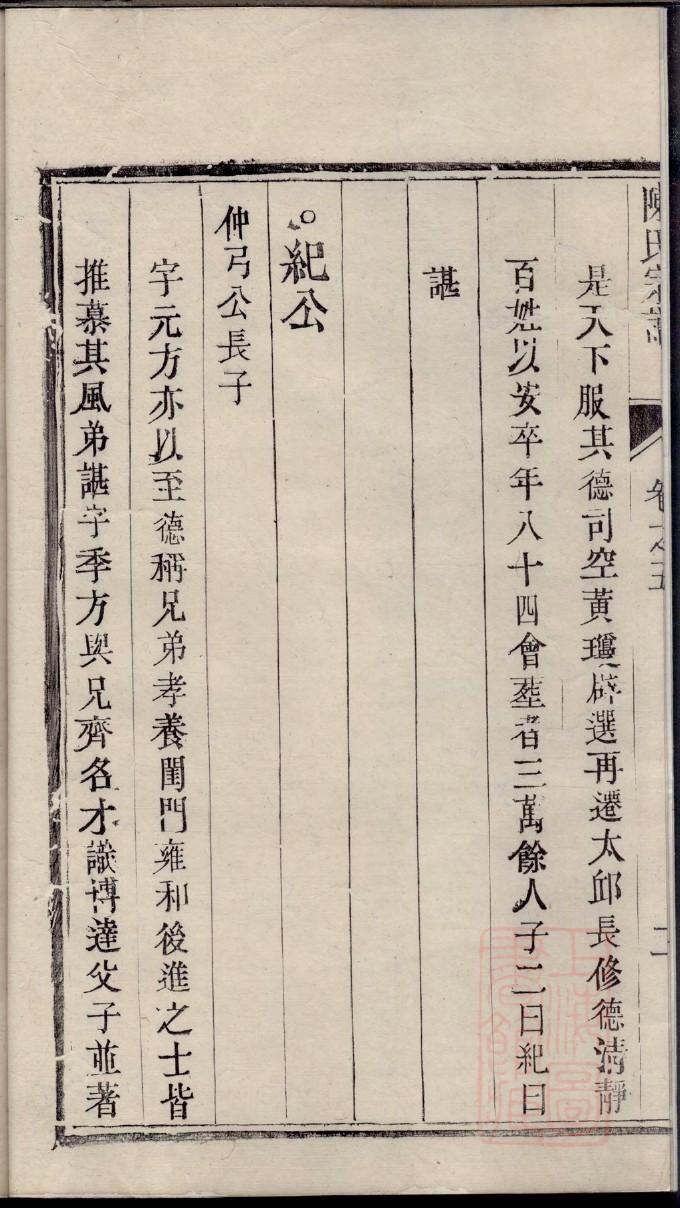 陳氏宗譜 卷之五 二
是天下服其德司空黃瓊辟選再遷太邱長修德清靜
百姓以安卒年八十四會塟者三萬餘人子二曰紀曰
諶
紀公
仲弓公長子
字元方亦以至德稱兄弟孝養閨門雍和後進之士皆
推慕其風弟諶字季方與兄齊名才識博達父子並著